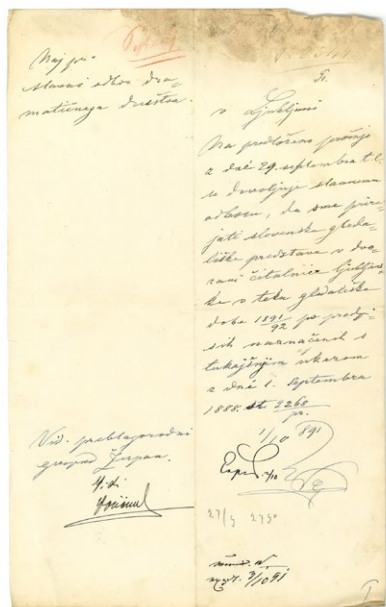 slavni odbor dra-
matičnega društva.
v Ljubljani
Na predloženo prošnjo
z dné 29. septembra t. l.
se dovoljuje slavnemu
odboru, da sme prire-
jati slovenske gleda-
liške predstave v dvo-
rani čitalnice ljubljan-
ske v teku gledališke
dobe 1891/92 po predpi-
sih naznačenih s
tukajšnjim ukazom
z dné 1. septembra
1888. št 2268
pr.
1/10 891
Vid. preblagorodni
gospod župan.
27/9 2730
3/10 91